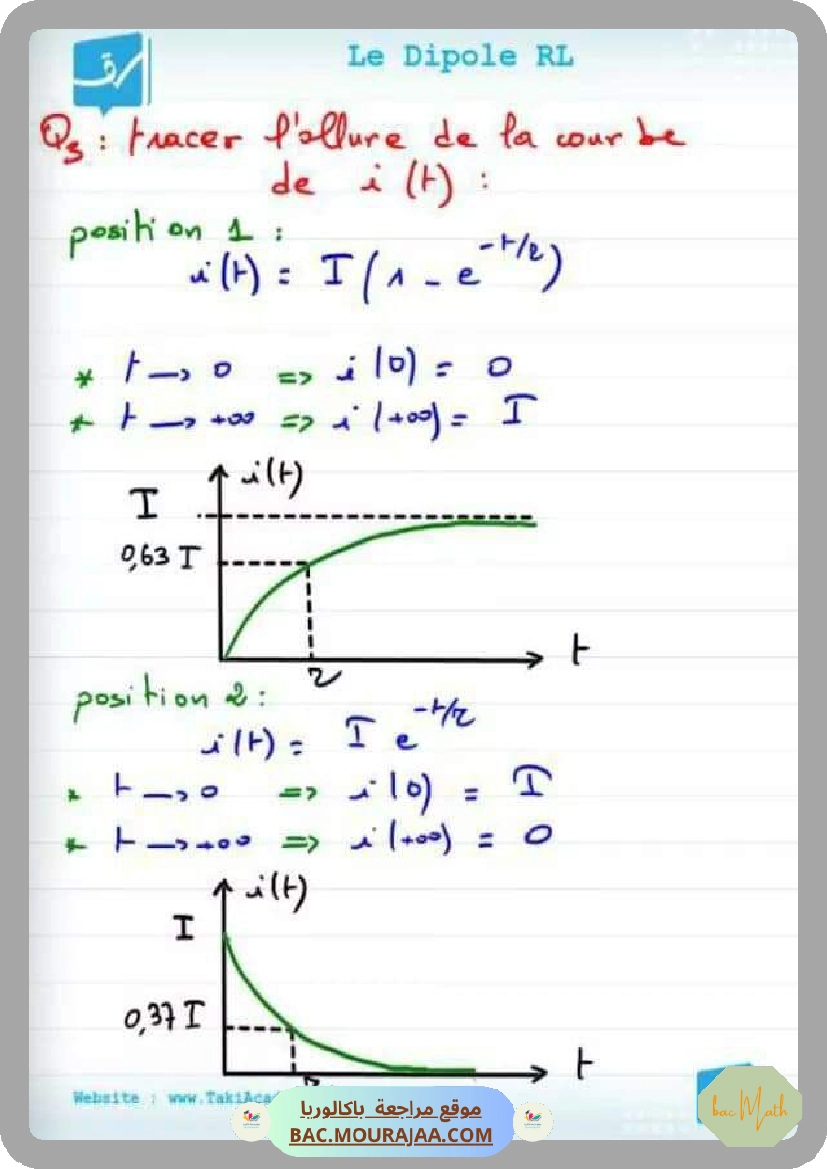 سراقي
Le Dipole RL
Q3 : tracer l'allure de la courbe
de i(t) :
position 1 :
i(t) = I(1 - e^{-t/τ})
* t → 0 => i(0) = 0
* t → +∞ => i(+∞) = I
i(t)
I
0,63 I
t
τ
position 2 :
i(t) = I e^{-t/τ}
* t → 0 => i(0) = I
* t → +∞ => i(+∞) = 0
i(t)
I
0,37 I
t
Website : www.TakiAca
موقع مراجعة باكالوريا
BAC.MOURAJAA.COM
bac Math